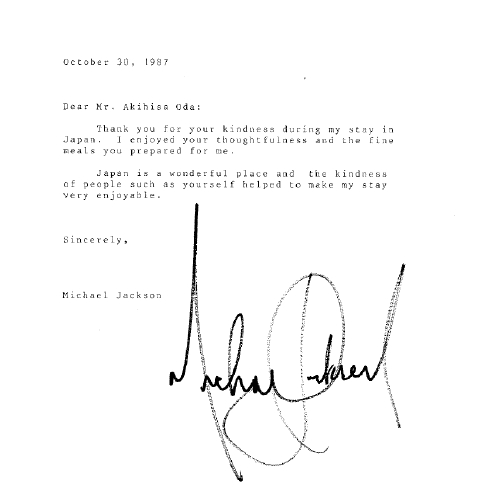 October 30, 1987
Dear Mr. Akihisa Oda:
Thank you for your kindness during my stay in
Japan. I enjoyed your thoughtfulness and the fine
meals you prepared for me.
Japan is a wonderful place and the kindness
of people such as yourself helped to make my stay
very enjoyable.
Sincerely,
Michael Jackson
Michael Jackson